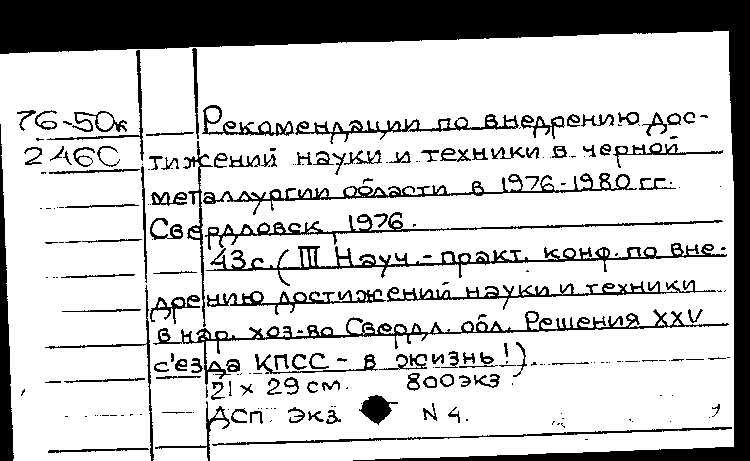 76-50к
2460
Рекомендации по внедрению дос-
тижений науки и техники в черной
металлургии области в 1976-1980 гг.
Свердловск, 1976.
43с. (III Науч.-практ. конф. по вне-
дрению достижений науки и техники
в нар. хоз-во Свердл. обл. Решения XXV
с'езда КПСС - в жизнь!).
21 х 29 см. 800 экз.
ДСП Экз. N 4.